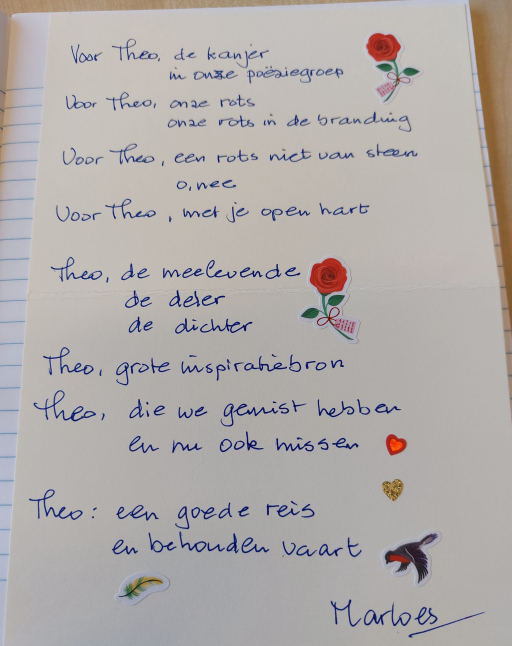 Voor Theo, de kanjer
in onze poëziegroep
Voor Theo, onze rots
onze rots in de branding
Voor Theo, een rots niet van steen
o, nee
Voor Theo, met je open hart
Theo, de meelevende
de deler
de dichter
Theo, grote inspiratiebron
Theo, die we gemist hebben
en nu ook missen
Theo: een goede reis
en behouden vaart
Marloes